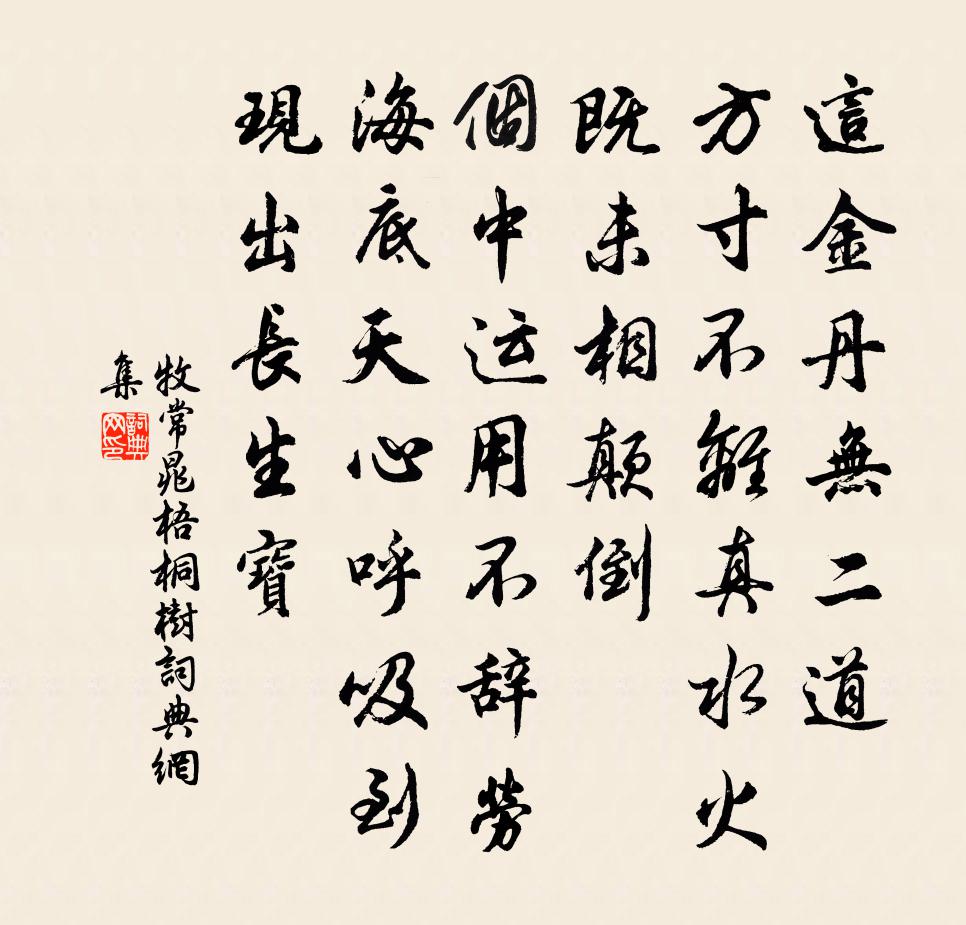 這金丹無二道
方寸不離真水火
既未相顛倒
個中运用不辞勞
海底天心呼吸到
現出長生寶
牧常晁梧桐樹詞典網
集
詞典
网印